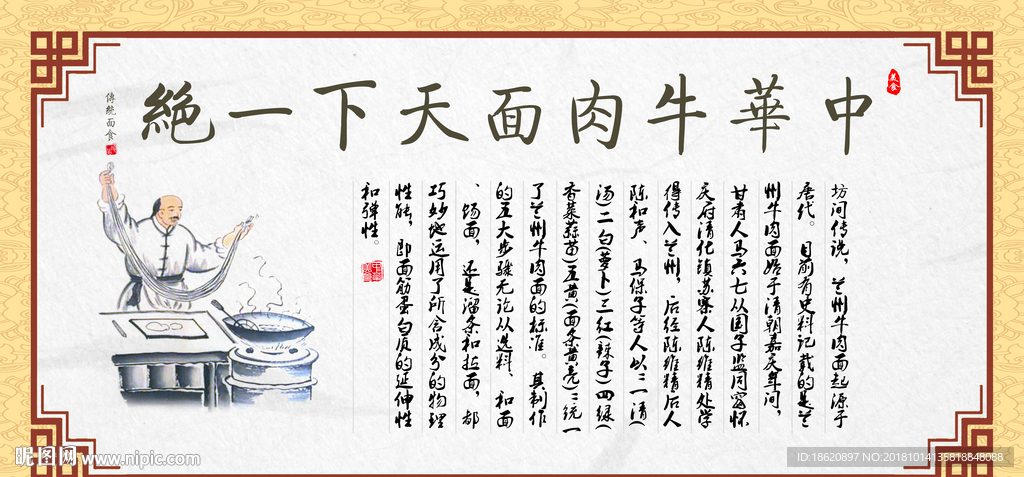 中華牛肉面天下一絕
美食
傳統面食
坊间传说，兰州牛肉面起源于
唐代。目前有史料记载的是兰
州牛肉面始于清朝嘉庆年间，
甘肃人马六七从国子监同窗怀
庆府清化镇苏寨人陈维精处学
得传入兰州，后经陈维精后人
陈和声、马保子等人以“一清(
汤)二白(萝卜)三红(辣子)四绿(
香菜蒜苗)五黄(面条黄亮)”统一
了兰州牛肉面的标准。其制作
的五大步骤无论从选料、和面
、饧面，还是溜条和拉面，都
巧妙地运用了所含成分的物理
性能，即面筋蛋白质的延伸性
和弹性。
昵图网 www.nipic.com
ID:18620897 NO:20181014135818848088